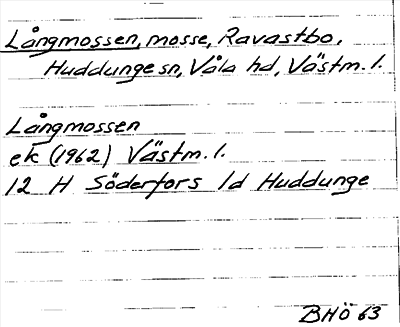 Långmossen, mosse, Ravastbo,
Huddunge sn, Våla hd, Västm. l.
Långmossen
ek (1962) Västm. l.
12 H Söderfors ld Huddunge
BHÖ 63